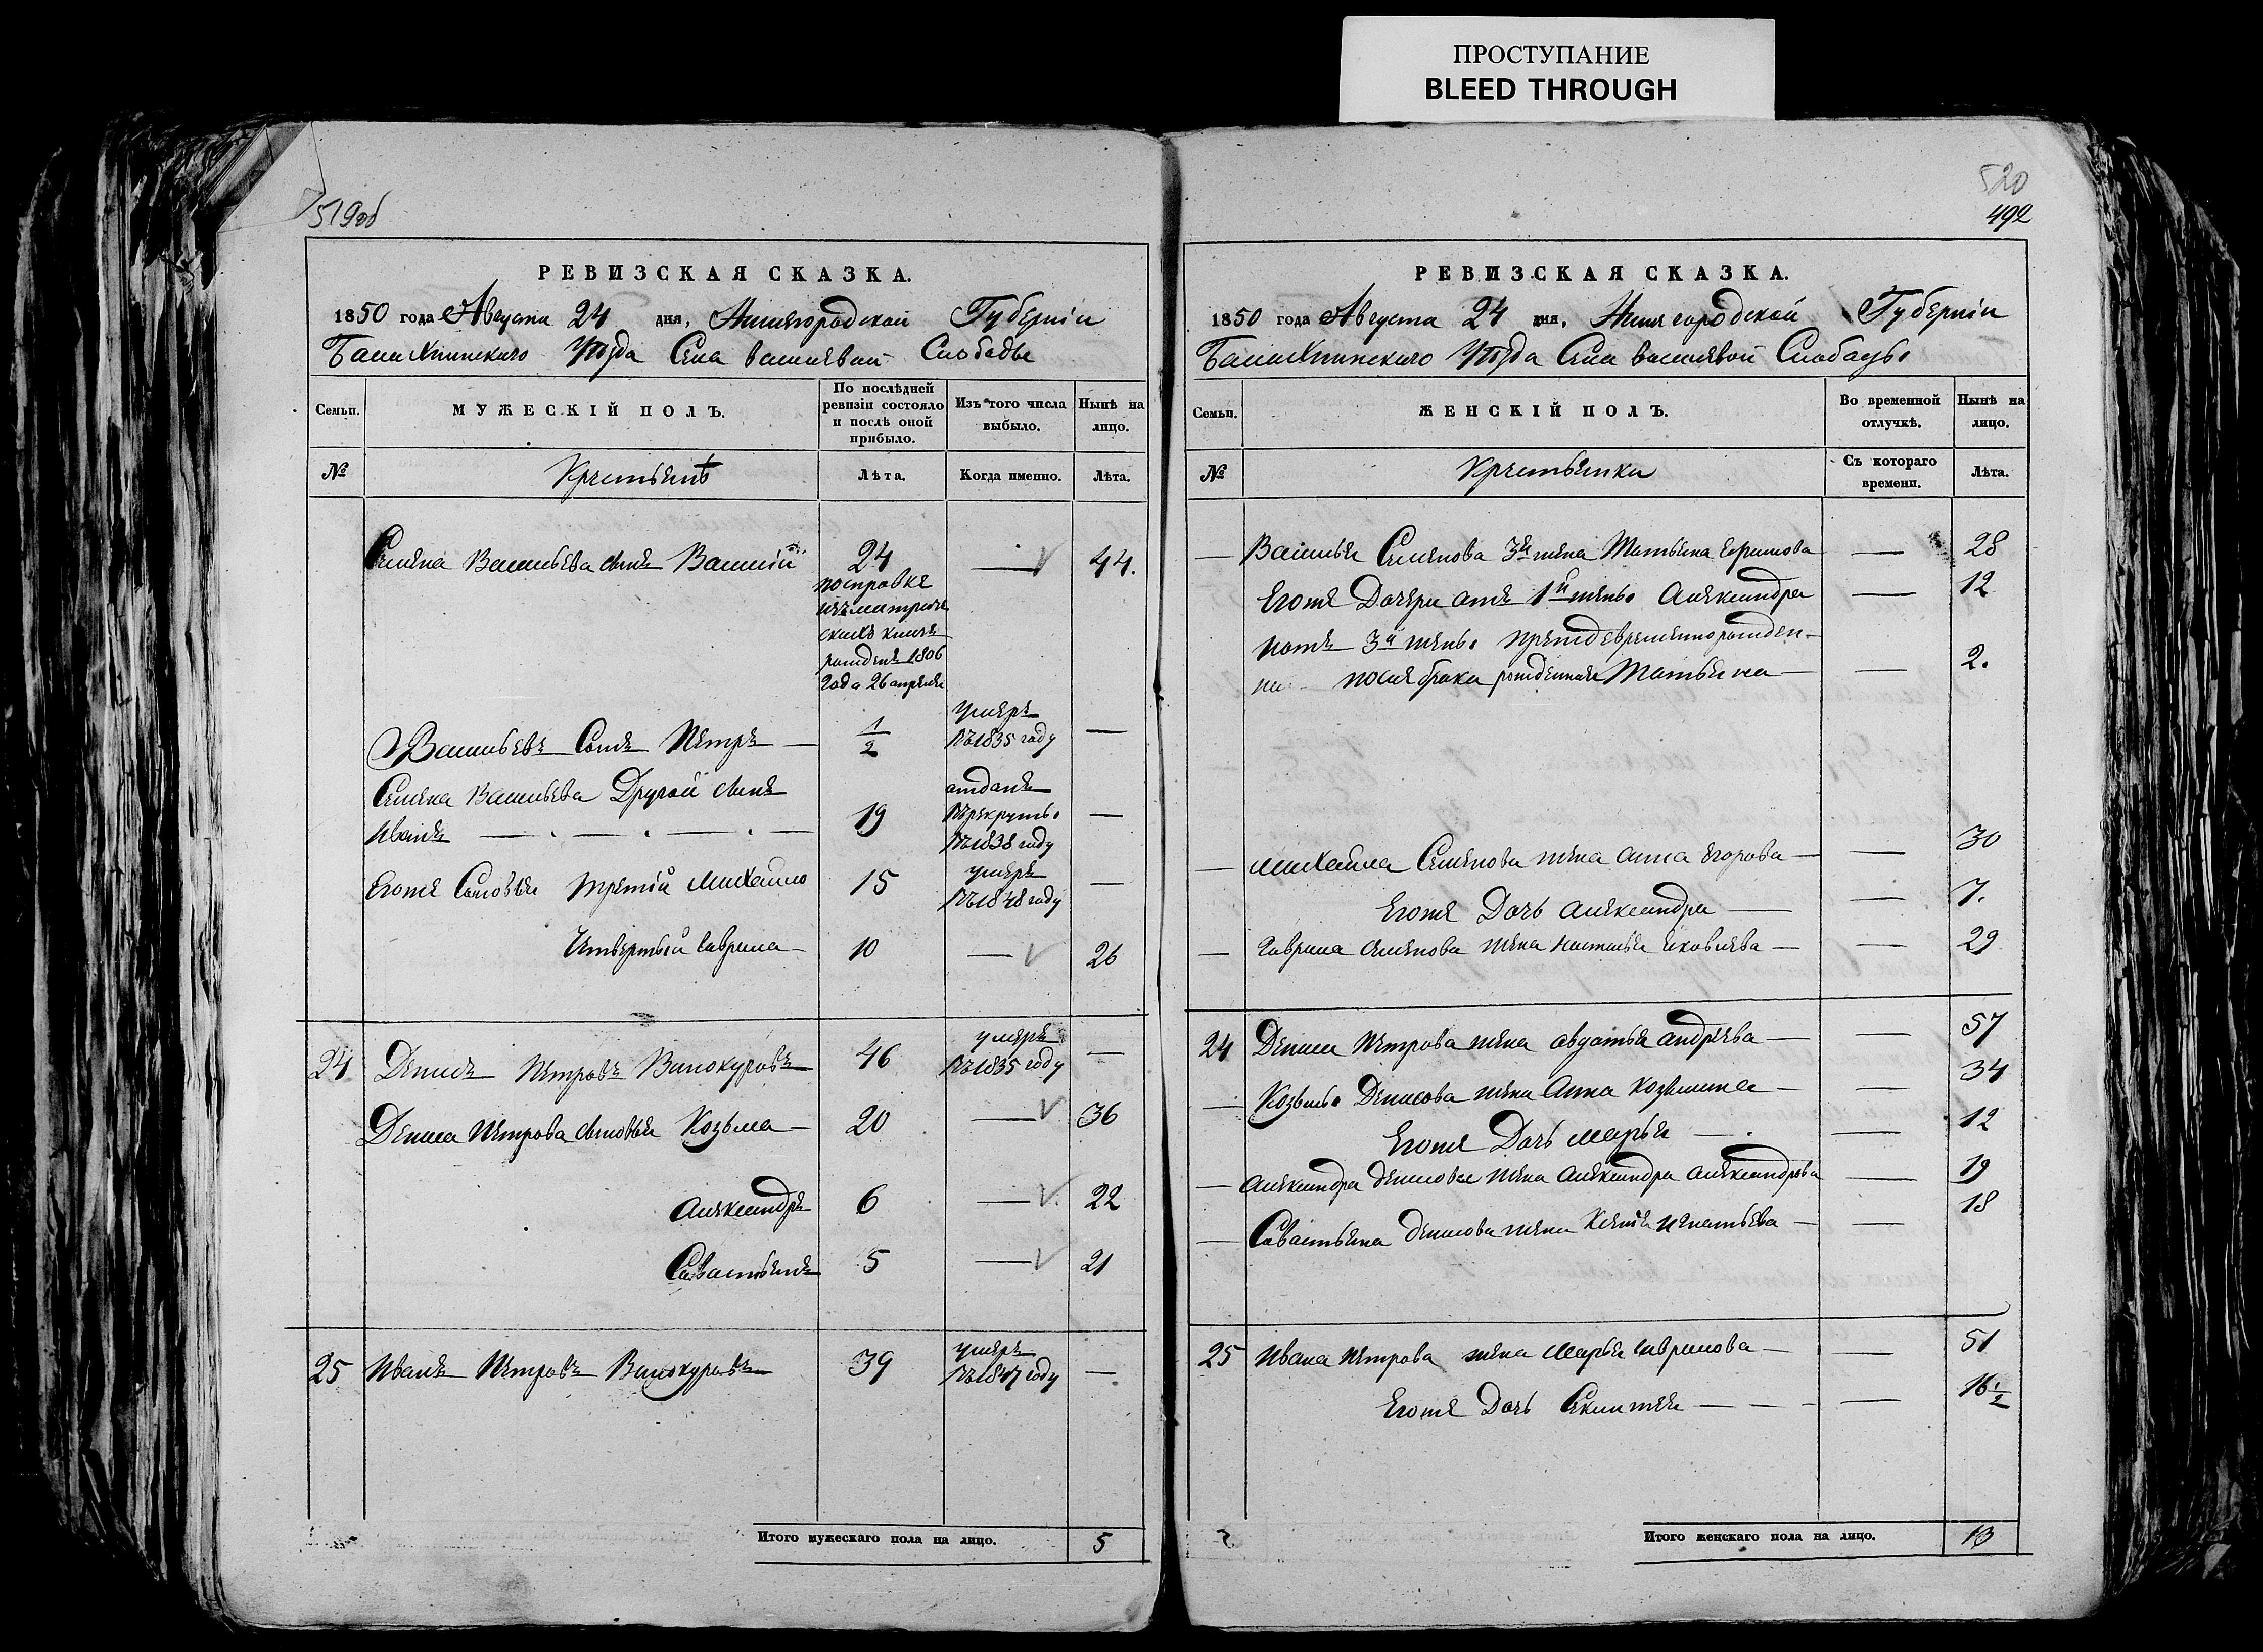 ПРОСТУПАНИЕ
BLEED THROUGH
519об
РЕВИЗСКАЯ СКАЗКА.
1850 года Августа 24 дня, Нижегородской Губерніи
Балахнинскаго Уѣзда Села Василевой Слободы
Семьи.
МУЖЕСКІЙ ПОЛЪ.
По послѣдней
ревизіи состояло
и послѣ оной
прибыло.
Изъ того числа
выбыло.
Нынѣ на
лицо.
№
Крестьянъ
Лѣта.
Когда именно.
Лѣта.
Семена Васильева сынъ Василій 24 — 44.
по справке
изъ метриче
скихъ книгъ
рожденъ 1806
года 26 апреля
Васильевъ Сынъ Петръ — 1/2 умеръ въ 1835 году —
Семена Васильева Другой сынъ
Иванъ — 19 отданъ въ рекруты въ 1838 году —
Егоже Сыновья третій Михайло 15 умеръ въ 1848 году —
Четвертый Гаврила — 10 — 26
24 Денисъ Петровъ Винокуровъ 46 умеръ въ 1835 году —
Дениса Петрова сыновья Козьма — 20 — 36
Александръ 6 — 22
Савастьянъ 5 — 21
25 Иванъ Петровъ Винокуровъ 39 умеръ въ 1847 году —
Итого мужескаго пола на лицо. 5
520
492
РЕВИЗСКАЯ СКАЗКА.
1850 года Августа 24 дня, Нижегородской Губерніи
Балахнинскаго Уѣзда Села Василевой Слободы
Семьи.
ЖЕНСКІЙ ПОЛЪ.
Во временной
отлучкѣ.
Нынѣ на
лицо.
№
Крестьянки
Съ котораго
времени.
Лѣта.
— Василья Семенова 3я жена Татьяна Ефимова — 28
Егоже Дочери отъ 1й жены Александра — 12
отъ 3й жены преждевременно рожден-
на после брака рожденная Татьяна — 2.
— Михайла Семенова жена Анна Егорова — 30
Егоже Дочь Александра — 7.
— Гаврила Семенова жена Наталья Яковлева — 29
24 Дениса Петрова жена Авдотья Андрѣева — 57
— Козьмы Денисова жена Анна Козмина — 34
Егоже Дочь Марья — 12
— Александра Денисова жена Александра Александрова — 19
— Савастьяна Денисова жена Игнатьева — 18
25 Ивана Петрова жена Марья Гаврилова — 51
Егоже Дочь — 16 1/2
Итого женскаго пола на лицо. 13